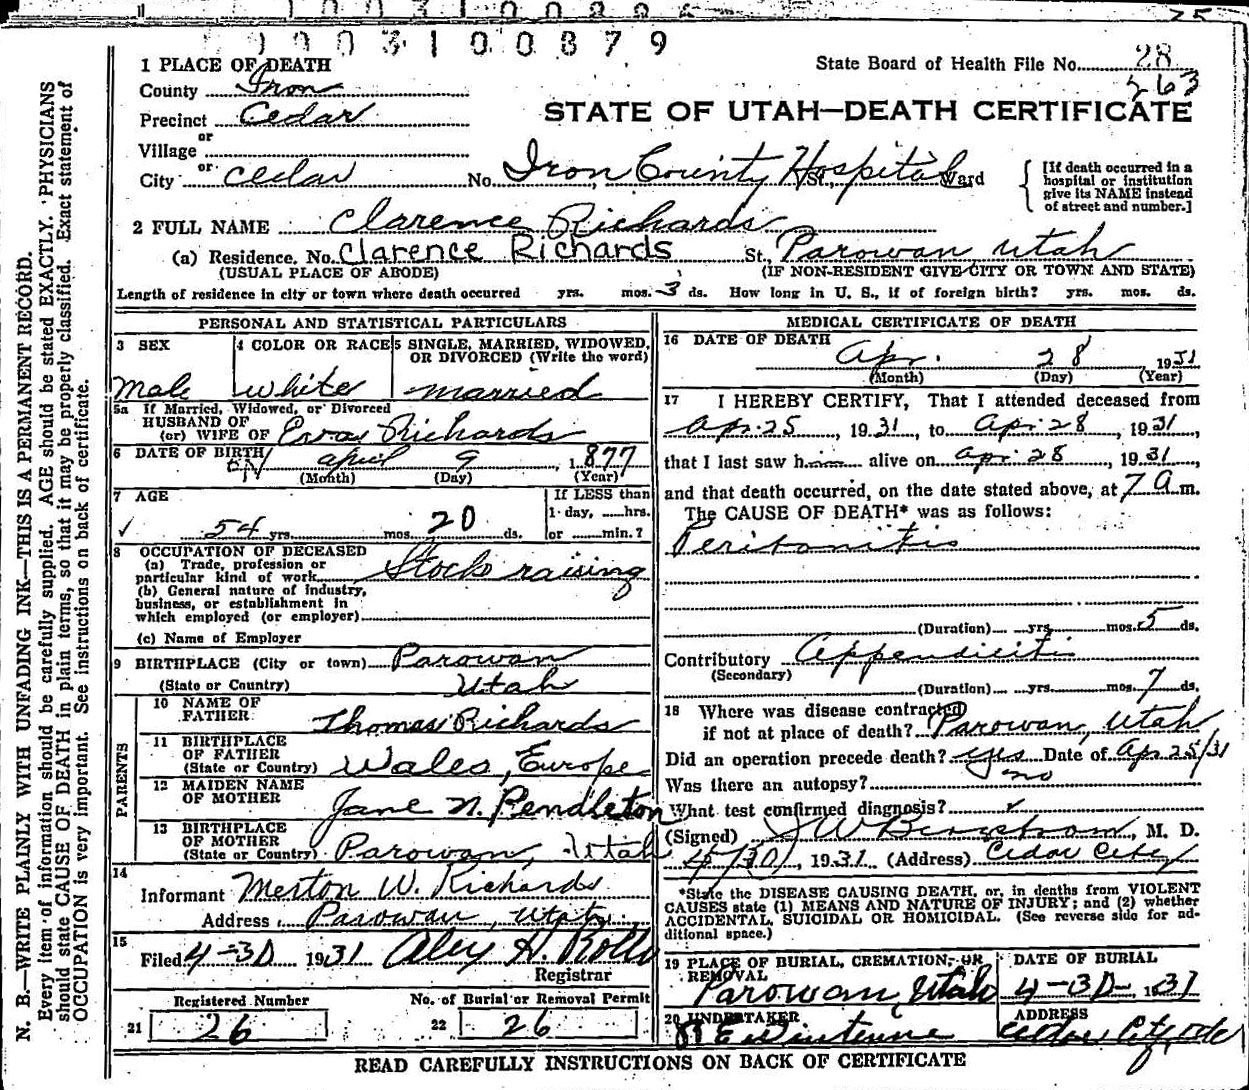 1003100879
1 PLACE OF DEATH
State Board of Health File No. 28
263
County Iron
STATE OF UTAH—DEATH CERTIFICATE
Precinct Cedar
or
Village
or
City Cedar No. Iron County Hospital St., Ward
[If death occurred in a hospital or institution give its NAME instead of street and number.]
2 FULL NAME Clarence Richards
(a) Residence, No. Clarence Richards St., Parowan Utah
(USUAL PLACE OF ABODE) (IF NON-RESIDENT GIVE CITY OR TOWN AND STATE)
Length of residence in city or town where death occurred yrs. mos. 3 ds. How long in U. S., if of foreign birth? yrs. mos. ds.
PERSONAL AND STATISTICAL PARTICULARS
3 SEX
Male
4 COLOR OR RACE
White
5 SINGLE, MARRIED, WIDOWED, OR DIVORCED (Write the word)
married
5a If Married, Widowed, or Divorced
HUSBAND OF
(or) WIFE OF Eva Richards
6 DATE OF BIRTH
April 9, 1877
(Month) (Day) (Year)
7 AGE
54 yrs. mos. 20 ds.
If LESS than
1 day, hrs.
or min.?
8 OCCUPATION OF DECEASED
(a) Trade, profession or
particular kind of work Stock raising
(b) General nature of industry,
business, or establishment in
which employed (or employer)
(c) Name of Employer
9 BIRTHPLACE (City or town) Parowan
(State or Country) Utah
PARENTS
10 NAME OF
FATHER Thomas Richards
11 BIRTHPLACE
OF FATHER
(State or Country) Wales, Europe
12 MAIDEN NAME
OF MOTHER Jane N. Pendleton
13 BIRTHPLACE
OF MOTHER
(State or Country) Parowan, Utah
14
Informant Merton W. Richards
Address Parowan, Utah
15
Filed 4-30, 1931 Alex H. Rollo
Registrar
Registered Number
21 26
No. of Burial or Removal Permit
22 26
MEDICAL CERTIFICATE OF DEATH
16 DATE OF DEATH
Apr. 28 1931
(Month) (Day) (Year)
17 I HEREBY CERTIFY, That I attended deceased from
Apr. 25, 1931, to Apr. 28, 1931,
that I last saw him alive on Apr. 28, 1931,
and that death occurred, on the date stated above, at 7 a m.
The CAUSE OF DEATH* was as follows:
Peritonitis
(Duration) yrs. mos. 5 ds.
Contributory Appendicitis
(Secondary)
(Duration) yrs. mos. 7 ds.
18 Where was disease contracted
if not at place of death? Parowan, Utah
Did an operation precede death? yes Date of Apr 25/31
Was there an autopsy? no
What test confirmed diagnosis?
(Signed) J W Bergstrom, M. D.
4/30, 1931 (Address) Cedar City
*State the DISEASE CAUSING DEATH, or, in deaths from VIOLENT
CAUSES state (1) MEANS AND NATURE OF INJURY; and (2) whether
ACCIDENTAL, SUICIDAL OR HOMICIDAL. (See reverse side for ad-
ditional space.)
19 PLACE OF BURIAL, CREMATION, OR
REMOVAL
Parowan, Utah
DATE OF BURIAL
4-30-, 1931
20 UNDERTAKER
ADDRESS
Cedar City
READ CAREFULLY INSTRUCTIONS ON BACK OF CERTIFICATE
N. B.—WRITE PLAINLY WITH UNFADING INK—THIS IS A PERMANENT RECORD.
Every item of information should be carefully supplied. AGE should be stated EXACTLY. PHYSICIANS
should state CAUSE OF DEATH in plain terms, so that it may be properly classified. Exact statement of
OCCUPATION is very important. See instructions on back of certificate.